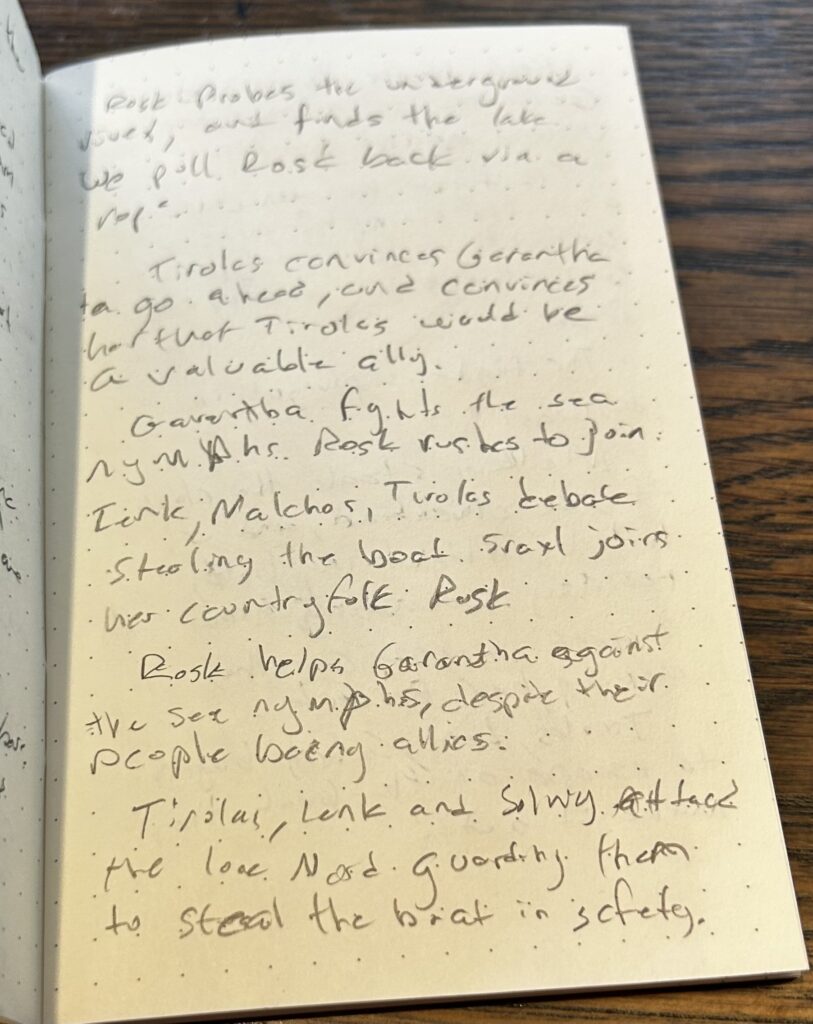 Rosk Probes the underground
river, and finds the lake.
We pull Rosk back via a
rope.
Tirolas convinces Garantha
to go ahead, and convinces
her that Tirolas would be
a valuable ally.
Garantha fights the sea
nymphs. Rosk rushes to join.
Lenk, Malchos, Tirolas debate
stealing the boat. Sraxl joins
her countryfolk Rosk
Rosk helps Garantha against
the sea nymphs, despite their
people being allies.
Tirolas, Lenk and Solwy attack
the lone Nord guarding them
to steal the boat in safety.